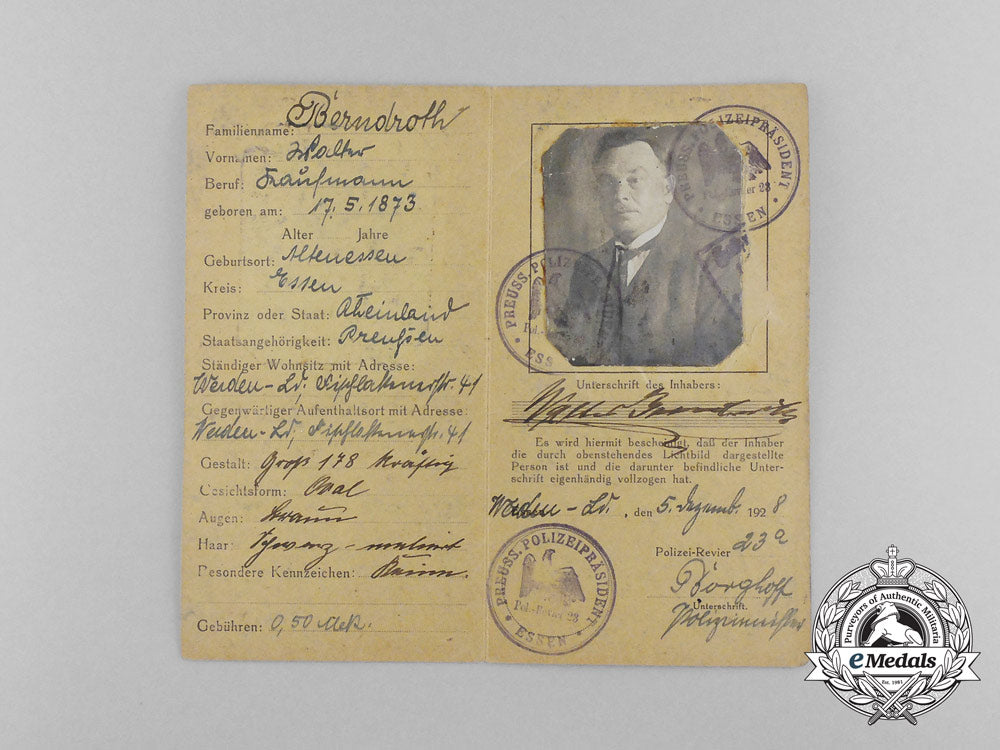 Familienname: Berndroth
Vornamen: Walter
Beruf: Kaufmann
geboren am: 17.5.1873
Alter Jahre
Geburtsort: Altenessen
Kreis: Essen
Provinz oder Staat: Rheinland
Staatsangehörigkeit: Preußen
Ständiger Wohnsitz mit Adresse:
Werden-Ld, Fischlakenerstr. 41
Gegenwärtiger Aufenthaltsort mit Adresse:
Werden-Ld, Fischlakenerstr. 41
Gestalt: Groß 178 kräftig
Gesichtsform: Oval
Augen: braun
Haar: schwarz-meliert
Besondere Kennzeichen: Keine.
Gebühren: 0,50 Mk.
PREUSS. POLIZEIPRÄSIDENT
ESSEN
PREUSS. POLIZEI
Pol.-
ESS
Unterschrift des Inhabers:
Walter Berndroth
Es wird hiermit bescheinigt, daß der Inhaber
die durch obenstehendes Lichtbild dargestellte
Person ist und die darunter befindliche Unter-
schrift eigenhändig vollzogen hat.
Werden-Ld., den 5. Dezemb. 1928
Polizei-Revier 23a
Borghoff
Unterschrift.
Polizeimeister
PREUSS. POLIZEIPRÄSIDENT
Pol.-Revier 23
ESSEN
Purveyors of Authentic Militaria
eMedals
Est. 1981